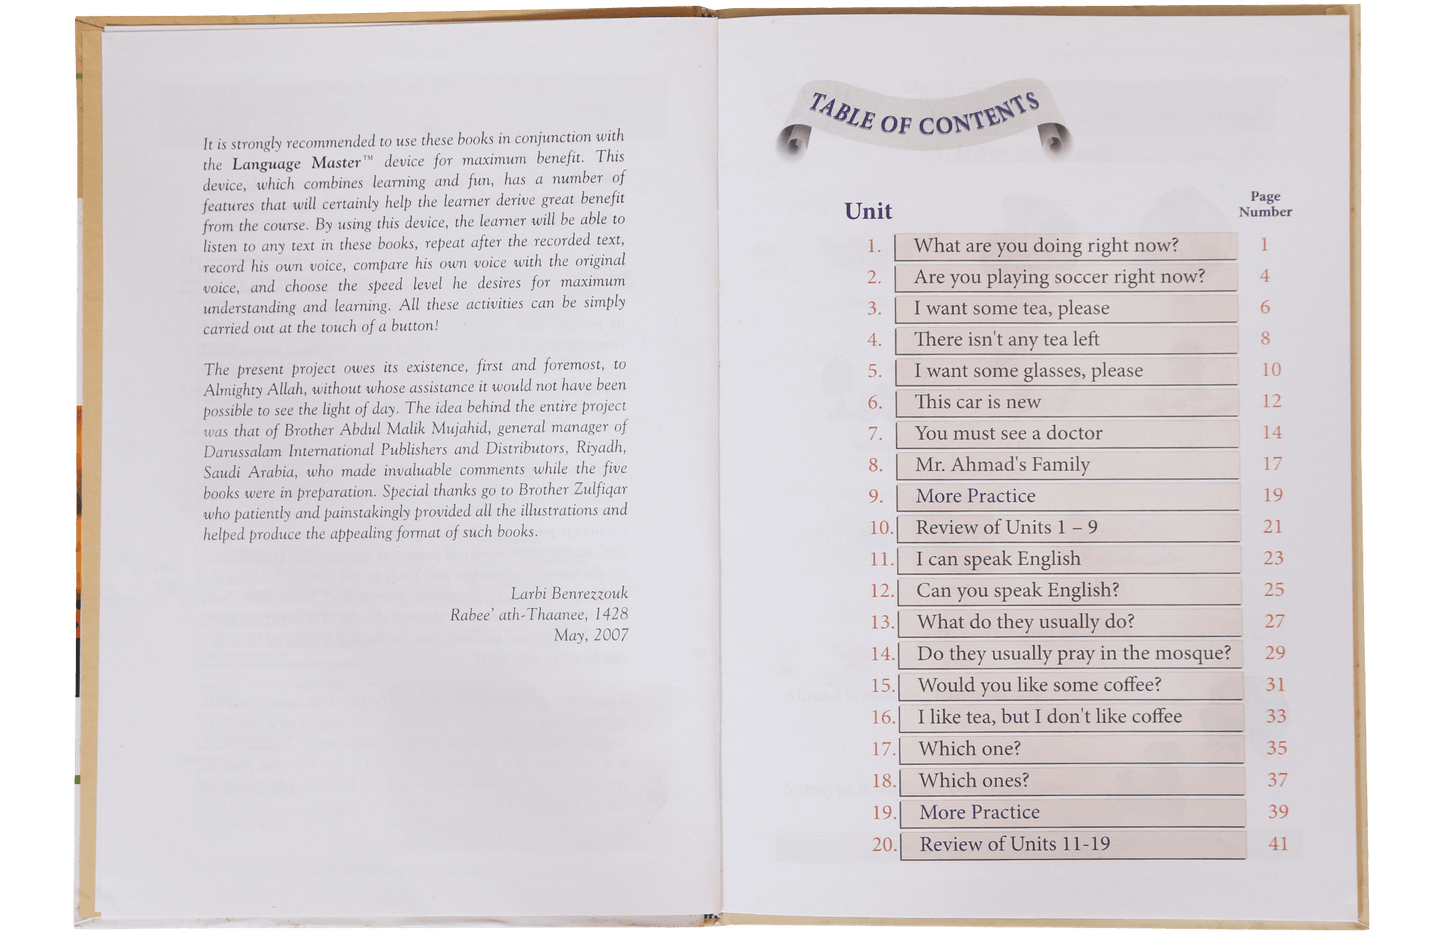 It is strongly recommended to use these books in conjunction with
the Language Master™ device for maximum benefit. This
device, which combines learning and fun, has a number of
features that will certainly help the learner derive great benefit
from the course. By using this device, the learner will be able to
listen to any text in these books, repeat after the recorded text,
record his own voice, compare his own voice with the original
voice, and choose the speed level he desires for maximum
understanding and learning. All these activities can be simply
carried out at the touch of a button!
The present project owes its existence, first and foremost, to
Almighty Allah, without whose assistance it would not have been
possible to see the light of day. The idea behind the entire project
was that of Brother Abdul Malik Mujahid, general manager of
Darussalam International Publishers and Distributors, Riyadh,
Saudi Arabia, who made invaluable comments while the five
books were in preparation. Special thanks go to Brother Zulfiqar
who patiently and painstakingly provided all the illustrations and
helped produce the appealing format of such books.
Larbi Benrezzouk
Rabee' ath-Thaanee, 1428
May, 2007
TABLE OF CONTENTS
Unit Page Number
1. What are you doing right now? 1
2. Are you playing soccer right now? 4
3. I want some tea, please 6
4. There isn't any tea left 8
5. I want some glasses, please 10
6. This car is new 12
7. You must see a doctor 14
8. Mr. Ahmad's Family 17
9. More Practice 19
10. Review of Units 1 – 9 21
11. I can speak English 23
12. Can you speak English? 25
13. What do they usually do? 27
14. Do they usually pray in the mosque? 29
15. Would you like some coffee? 31
16. I like tea, but I don't like coffee 33
17. Which one? 35
18. Which ones? 37
19. More Practice 39
20. Review of Units 11-19 41